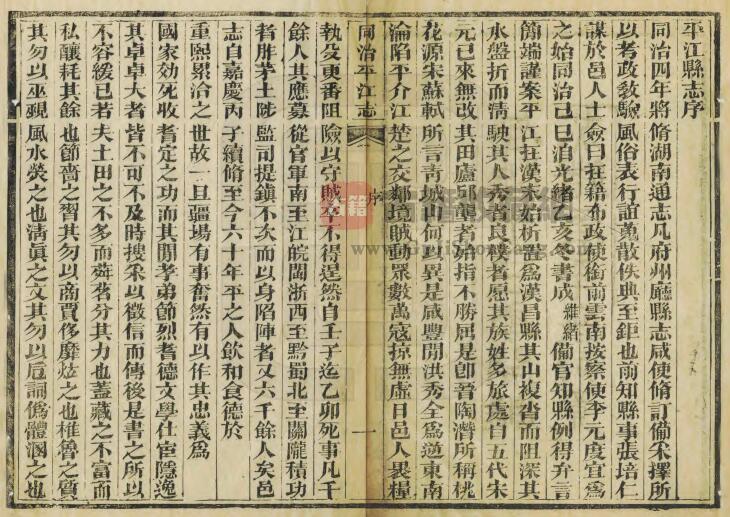 平江縣志序
同治四年將脩湖南通志凡府州廳縣志咸使脩訂備采擇所
以考政敎驗風俗表行誼萬散佚典至鉅也前知縣事張培仁
謀於邑人士僉曰在籍布政使銜前雲南按察使李元度宜爲
之始同治己巳洎光緒乙亥冬書成維緒備官知縣例得弁言
簡端謹案平江在漢末始析置爲漢昌縣其山複沓而阻深其
水盤折而清駛其人秀者良樸者愿其族姓多旅處自五代宋
元已來無改其田廬邱壟者始指不勝屈是卽晉陶潛所稱桃
花源宋蘇軾所言靑城山何以異是咸豐閒洪秀全爲逆東南
淪陷平介江楚之交鄰境賊動眾數萬寇掠無虛日邑人畏糧
同治平江志
序
一
執殳更番阻險以守賊卒不得逞然自壬子迄乙卯死事凡千
餘人其應募從官軍南至江皖閩浙西至黔蜀北至關隴積功
者胙茅土陟監司提鎮不次而以身陷陣者又六千餘人矣邑
志自嘉慶丙子續脩至今六十年平之人飮和食德於
重熙累洽之世故一旦疆場有事奮然有以作其忠義爲
國家効死收耆定之功而其閒孝弟節烈耆德文學仕宦隱逸
其卓卓大者皆不可不及時搜采以徵信而傳後是書之所以
不容緩已若夫土田之不多而薪茗分其力也蓋藏之不富而
私釀耗其餘也節嗇之習其勿以商賈侈靡炫之也椎魯之質
其勿以巫覡風水熒之也淸眞之文其勿以卮詞僞體溷之也